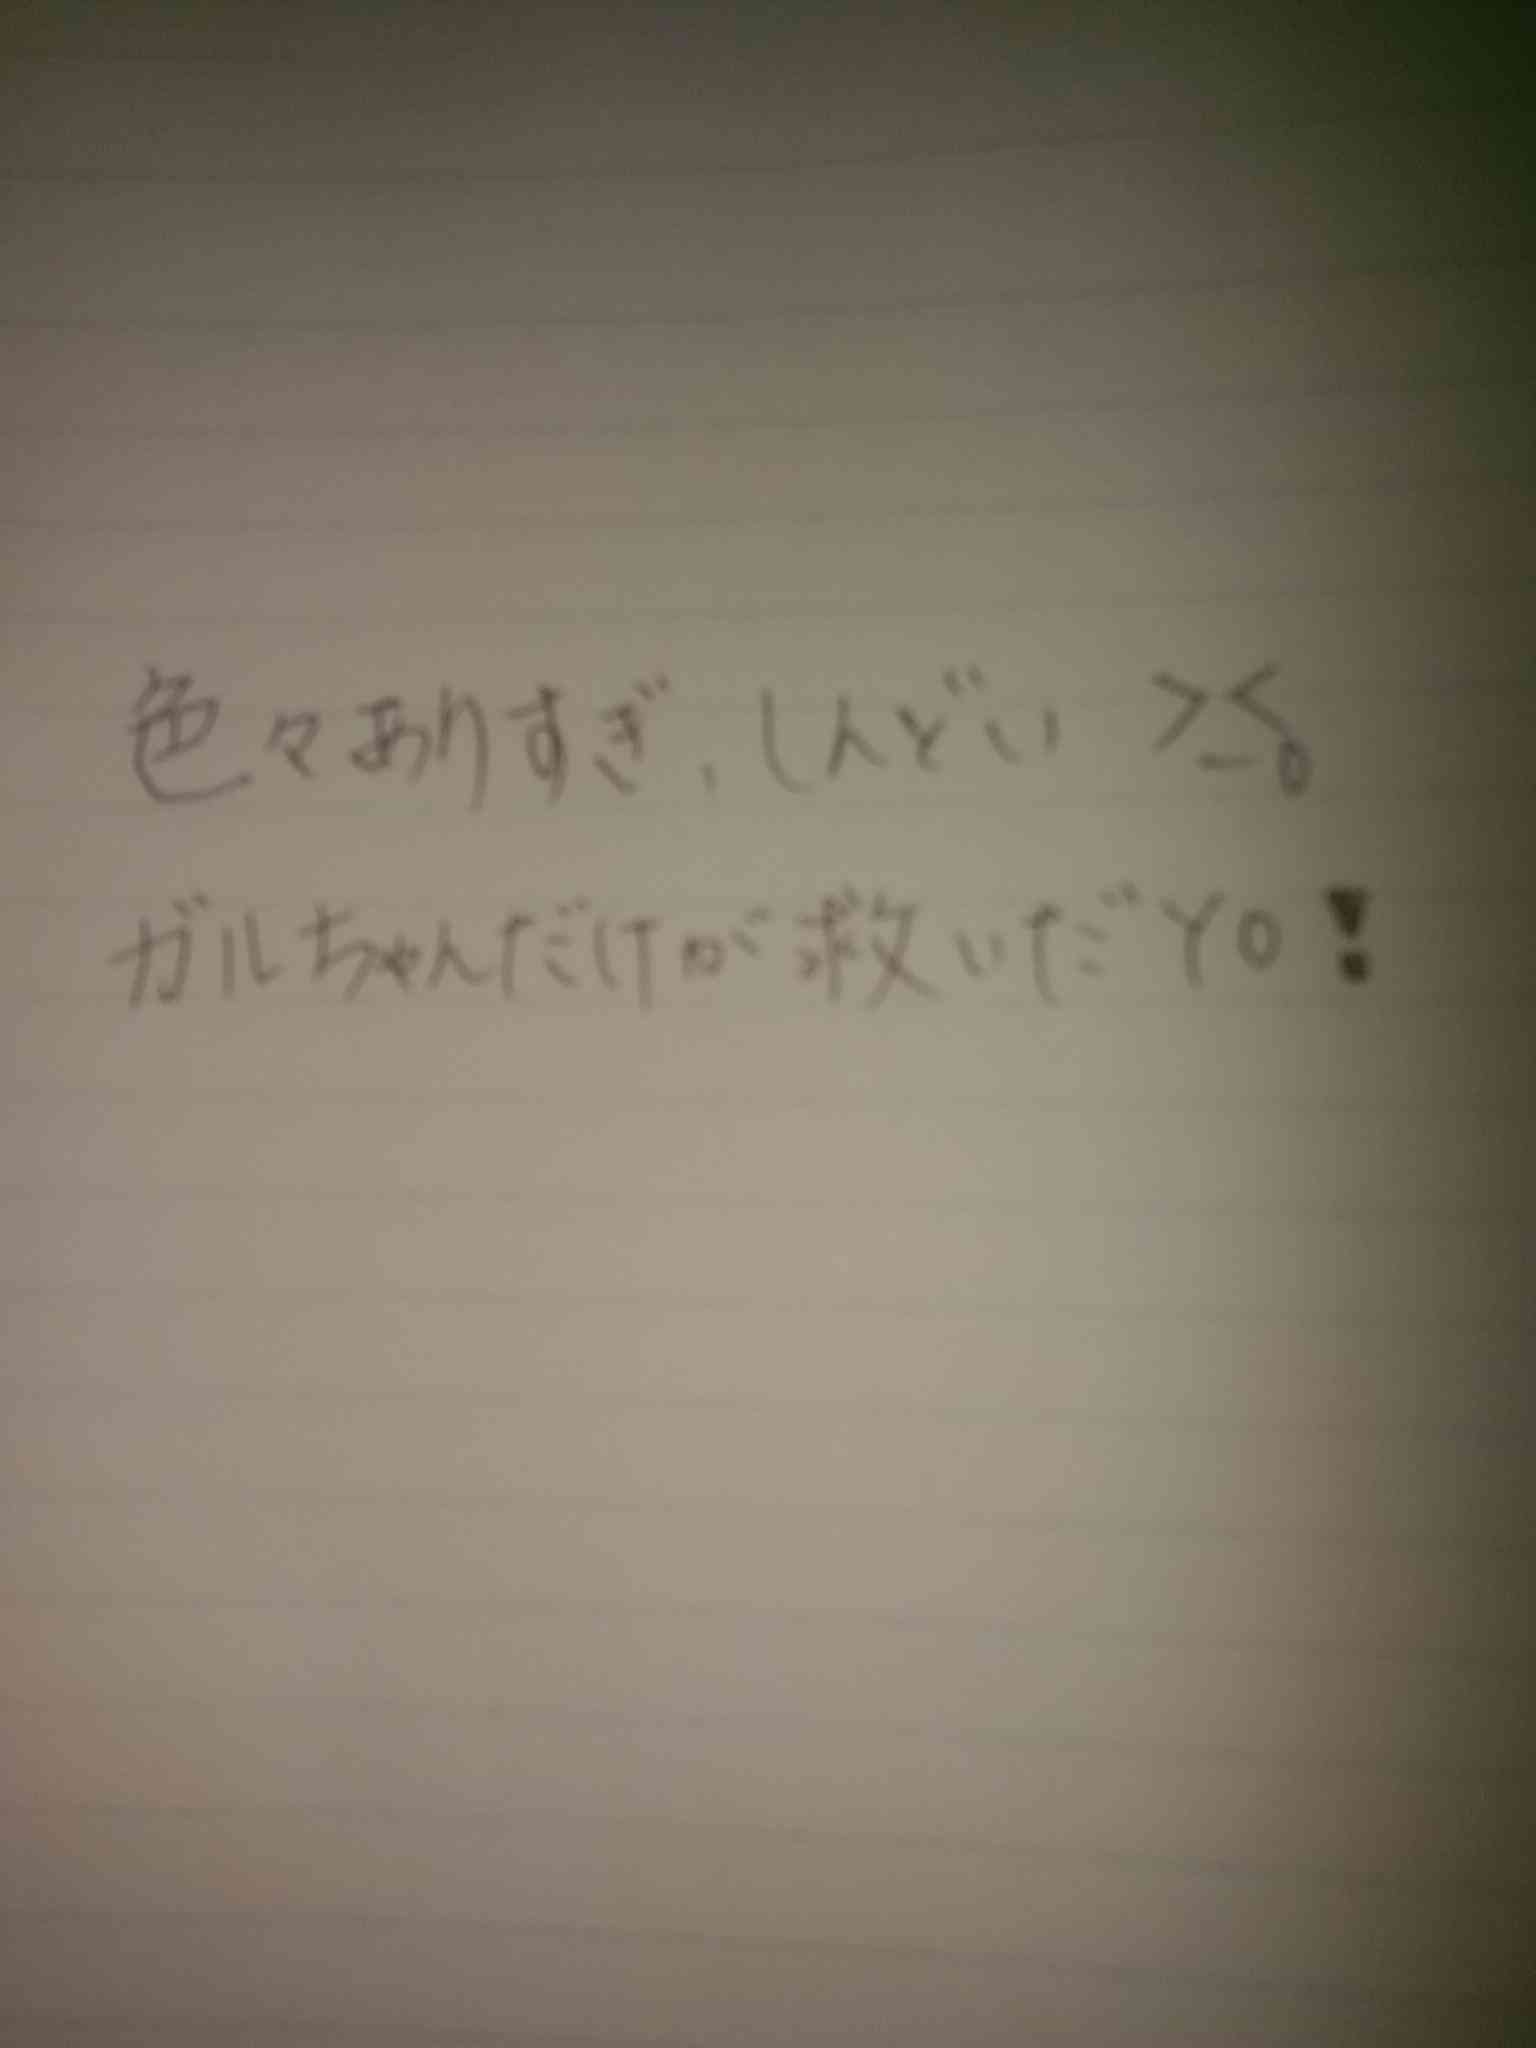 色々ありすぎ、しんどい >_<。
ガルちゃんだけが救いだYO!